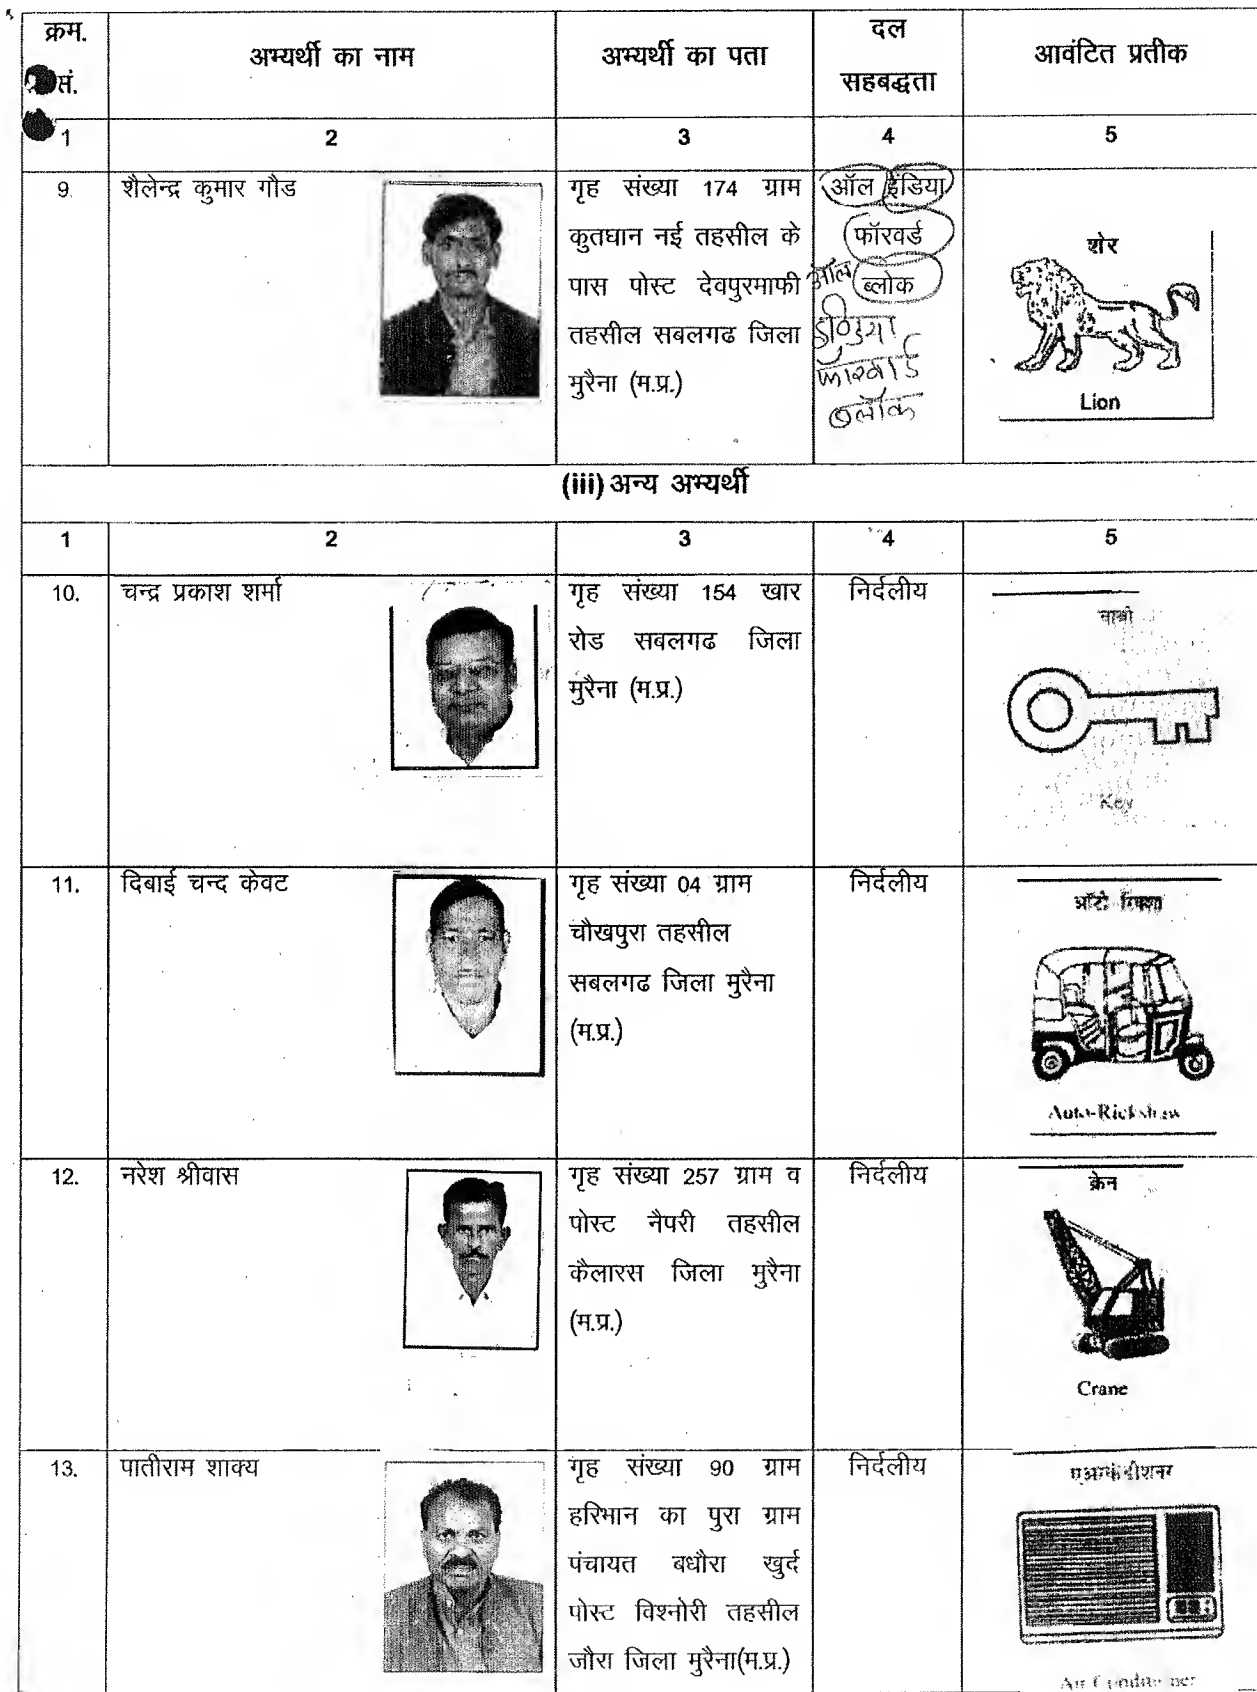 क्रम. सं.
अभ्यर्थी का नाम
अभ्यर्थी का पता
दल सहबद्धता
आवंटित प्रतीक
1 2 3 4 5
9. शैलेन्द्र कुमार गौड
गृह संख्या 174 ग्राम
कुतघान नई तहसील के
पास पोस्ट देवपुरमाफी
तहसील सबलगढ जिला
मुरैना (म.प्र.)
ऑल इंडिया
फॉरवर्ड
ब्लोक
ऑल
इण्डिया
फारवार्ड
ब्लॉक
शेर
Lion
(iii) अन्य अभ्यर्थी
1 2 3 4 5
10. चन्द्र प्रकाश शर्मा
गृह संख्या 154 खार
रोड सबलगढ जिला
मुरैना (म.प्र.)
निर्दलीय
चाबी
Key
11. दिबाई चन्द केवट
गृह संख्या 04 ग्राम
चौखपुरा तहसील
सबलगढ जिला मुरैना
(म.प्र.)
निर्दलीय
ऑटो रिक्शा
Auto-Rickshaw
12. नरेश श्रीवास
गृह संख्या 257 ग्राम व
पोस्ट नैपरी तहसील
कैलारस जिला मुरैना
(म.प्र.)
निर्दलीय
क्रेन
Crane
13. पातीराम शाक्य
गृह संख्या 90 ग्राम
हरिभान का पुरा ग्राम
पंचायत बधौरा खुर्द
पोस्ट विश्नोरी तहसील
जौरा जिला मुरैना(म.प्र.)
निर्दलीय
एअरकंडीशनर
Air Conditioner